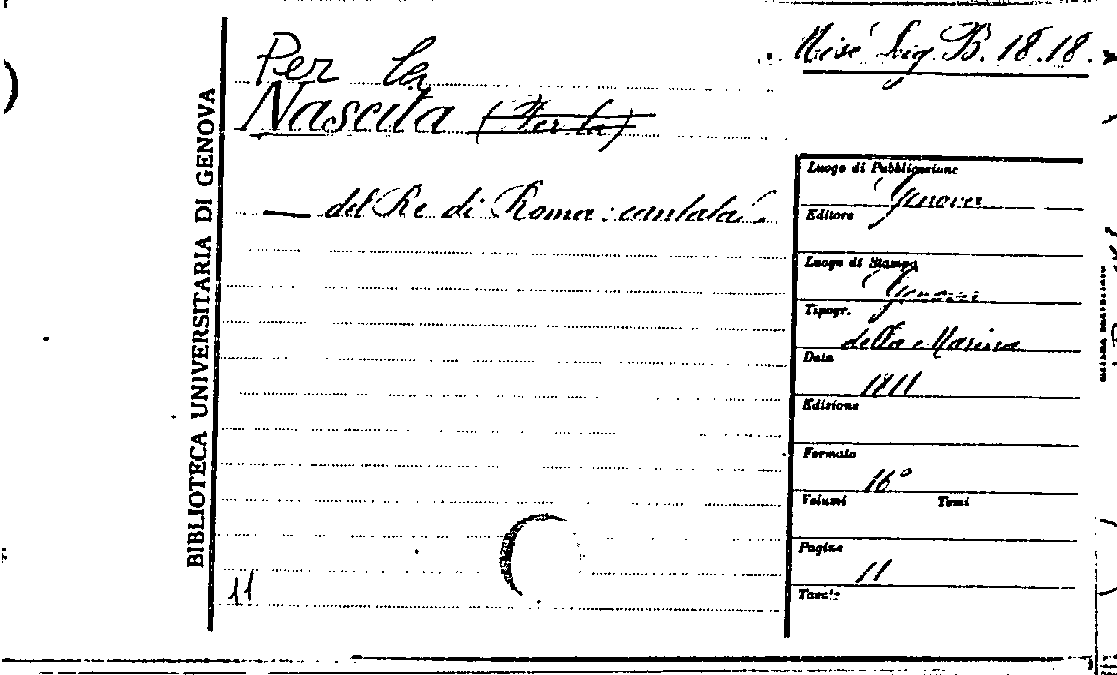 Misc Lig. B. 18.18.
Per la
Nascita (Per la)
— del Re di Roma: cantata.
BIBLIOTECA UNIVERSITARIA DI GENOVA
Luogo di Pubblicazione
Genova
Editore
Luogo di Stampa
Genova
Tipogr.
della Marina
Data
1811
Edizione
Formato
16°
Volumi Tomi
Pagine
11
Tavole
11